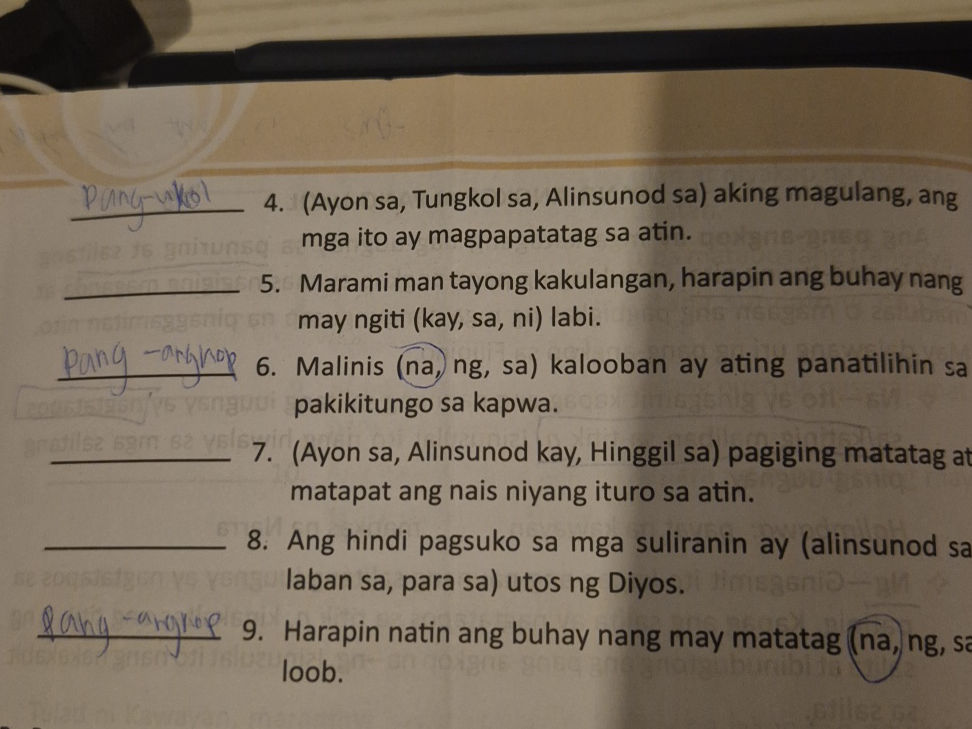 Pang-ukol 4. (Ayon sa, Tungkol sa, Alinsunod sa) aking magulang, ang
mga ito ay magpapatatag sa atin.
5. Marami man tayong kakulangan, harapin ang buhay nang
may ngiti (kay, sa, ni) labi.
Pang-angkop 6. Malinis (na, ng, sa) kalooban ay ating panatilihin sa
pakikitungo sa kapwa.
7. (Ayon sa, Alinsunod kay, Hinggil sa) pagiging matatag at
matapat ang nais niyang ituro sa atin.
8. Ang hindi pagsuko sa mga suliranin ay (alinsunod sa
laban sa, para sa) utos ng Diyos.
Pang-angkop 9. Harapin natin ang buhay nang may matatag (na, ng, sa
loob.